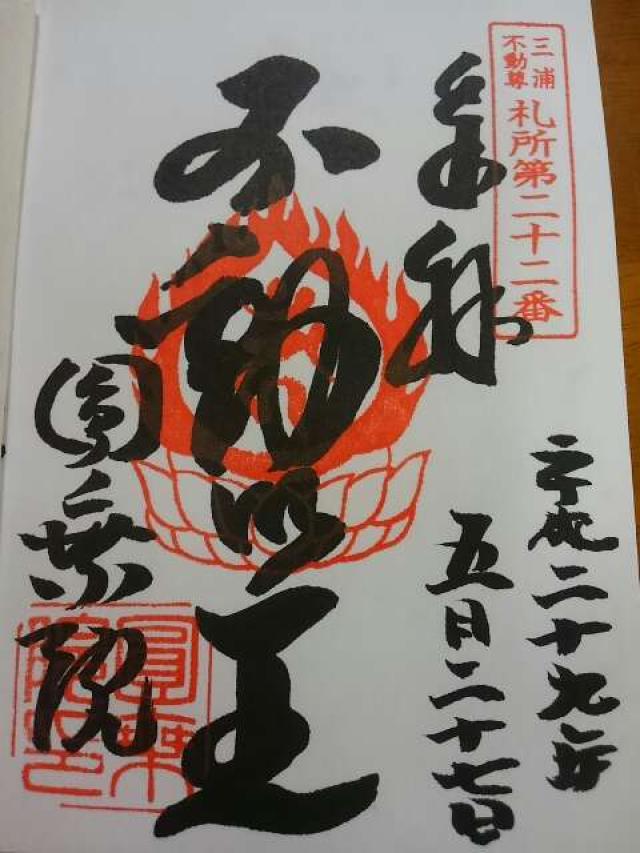 三浦
不動尊
札所第二十二番
奉拝
平成二十九年
五月二十七日
不動明王
圓乗院
圓乗
院印